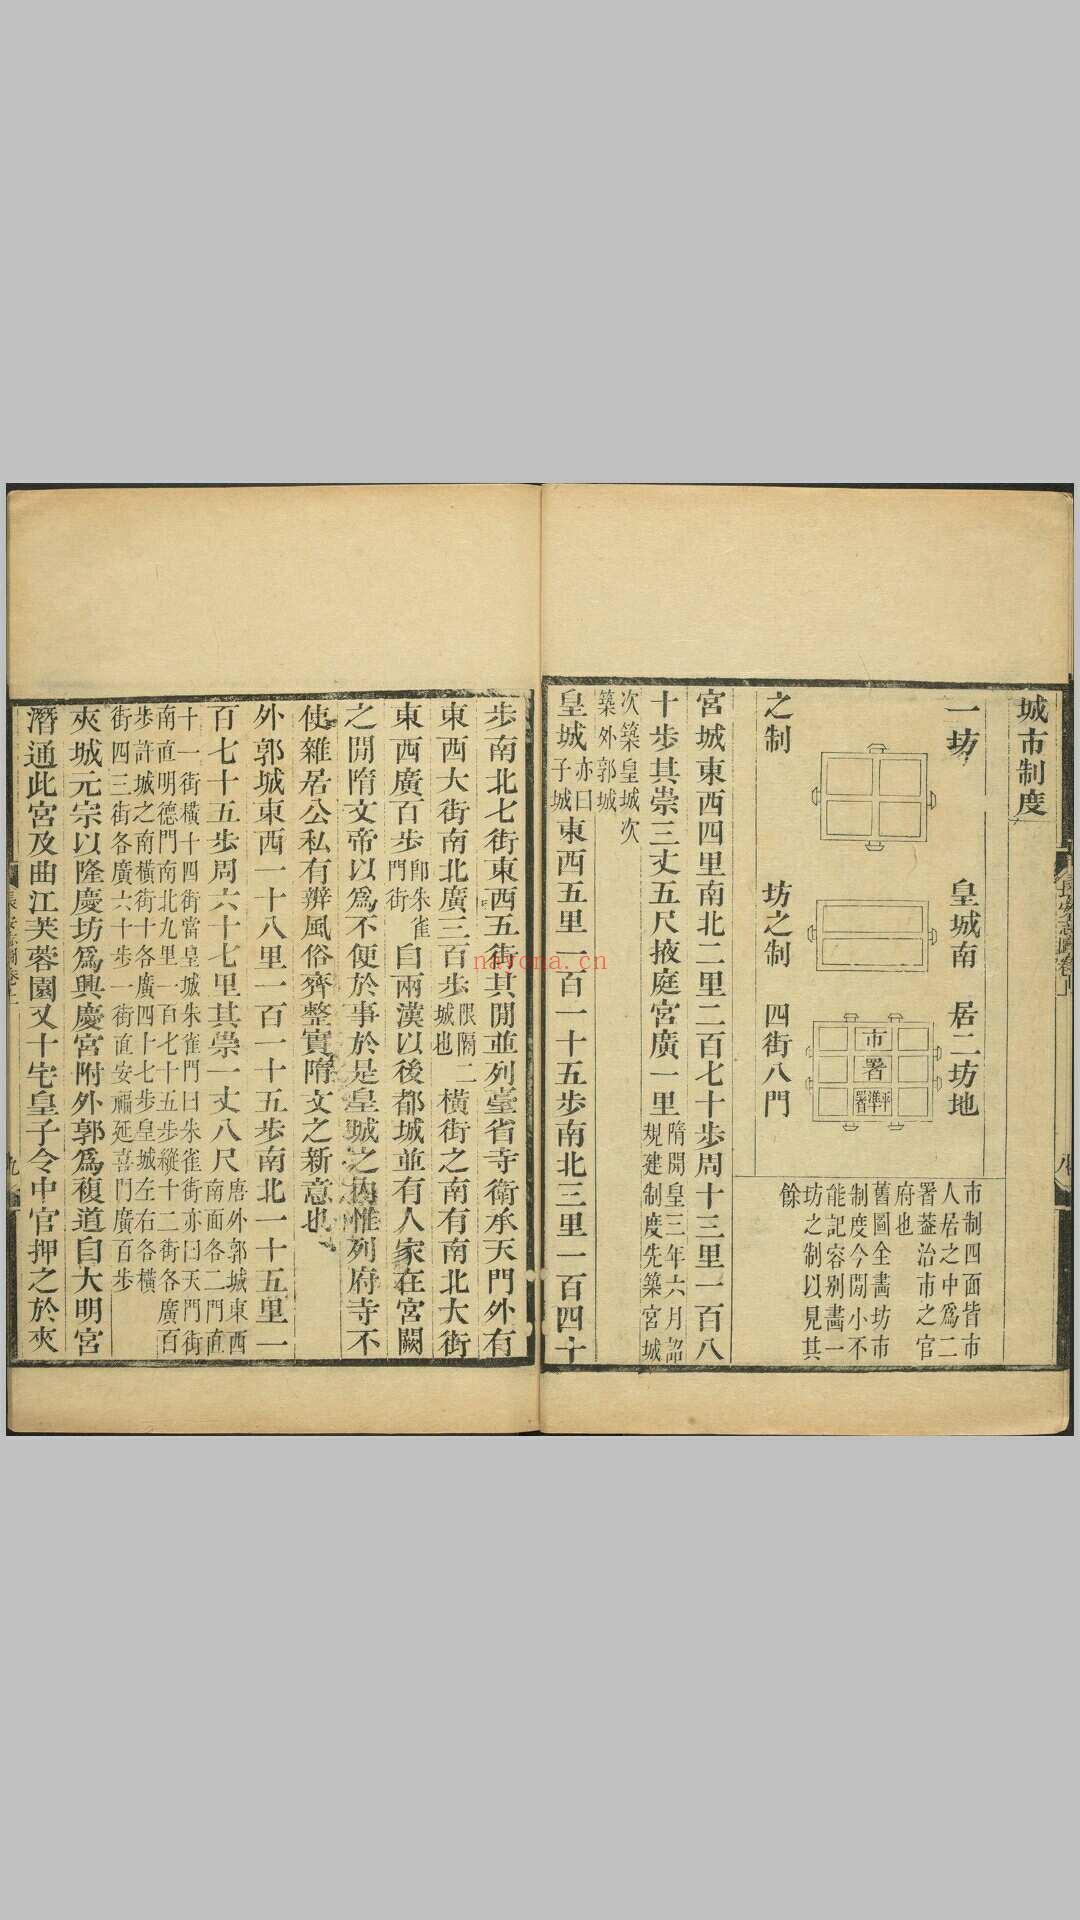 城市制度
一坊
之制
皇城南
坊之制
居二坊地
四街八門
市
署
平準署
市制四面皆市
人居之中爲二
署葢治市之官
府也
舊圖全畫坊市
制度今閒小不
能記容别畫一
坊之制以見其
餘
宮城東西四里南北二里二百七十步周十三里一百八
十步其崇三丈五尺掖庭宮廣一里隋開皇三年六月詔規建制度先築宮城
次築皇城次築外郭城
皇城亦曰子城東西五里一百一十五步南北三里一百四十
步南北七街東西五街其閒並列臺省寺衛承天門外有
東西大街南北廣三百步限隔二城也橫街之南有南北大街
東西廣百步卽朱雀門街自兩漢以後都城並有人家在宮闕
之閒隋文帝以爲不便於事於是皇城之內惟列府寺不
使雜居公私有辨風俗齊整實隋文之新意也
外郭城東西一十八里一百一十五步南北一十五里一
百七十五步周六十七里其崇一丈八尺唐外郭城東西南面各二門直
十一街橫十四街當皇城朱雀門曰朱雀街亦曰天門街
南直明德門南北九里一百七十五步縱十二街各廣百
步許城之南橫街十各廣四十七步皇城左右各橫
街四三街各廣六十步一街直安福延喜門廣百步
夾城元宗以隆慶坊爲興慶宮附外郭爲複道自大明宮
潛通此宮及曲江芙蓉園又十宅皇子令中官押之於夾
八
九
nayona.cn